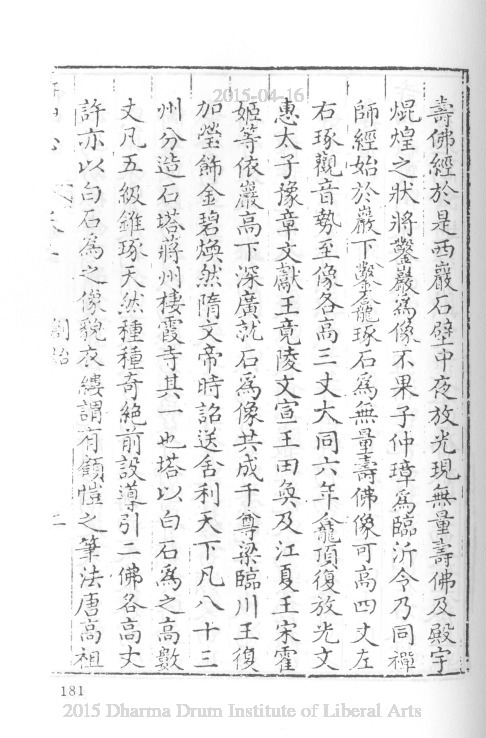 2015-04-16
壽佛經於是西巖石壁中夜放光現無量壽佛及殿宇
焜煌之狀將鑿巖為像不果子仲璋為臨沂令乃同禪
師經始於巖下鑿龕琢石為無量壽佛像可高四丈左
右琢觀音勢至像各高三丈大同六年龕頂復放光文
惠太子豫章文獻王竟陵文宣王田奐及江夏王宋霍
姬等依巖高下深廣就石為像共成千尊梁臨川王復
加瑩飾金碧煥然隋文帝時詔送舍利天下凡八十三
州分造石塔蔣州棲霞寺其一也塔以白石為之高數
丈凡五級錐琢天然種種奇絕前設導引二佛各高丈
許亦以白石為之像貌衣縷謂有顧愷之筆法唐高祖
創始
二
181
2015 Dharma Drum Institute of Liberal Arts